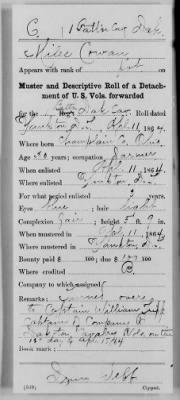 C 1 Batt'n Cav. Dak.
Niles Cowan
Appears with rank of
Muster and Descriptive Roll of a Detachment
of U. S. Vols. forwarded
for the Dak Cav Roll dated
Yankton D.T. Apl. 11, 1864.
Where born Champlain Co, Ohio
Age y'rs; occupation Farmer
When enlisted Apl 11, 1864.
Where enlisted Yankton, D.T.
For what period enlisted 3 years.
Eyes Blue; hair Light
Complexion Fair; height 5 ft. 9 in.
When mustered in Apl 11, 1864.
Where mustered in Yankton, D.T.
Bounty paid $ 100; due $ 100
Where credited
Company to which assigned
Remarks: Turned over
to Captain William Tripp
Captain of Company B
Dakota Cavalry Vols. on the
day of Apl 1864
Book mark:
(339) Copyist.